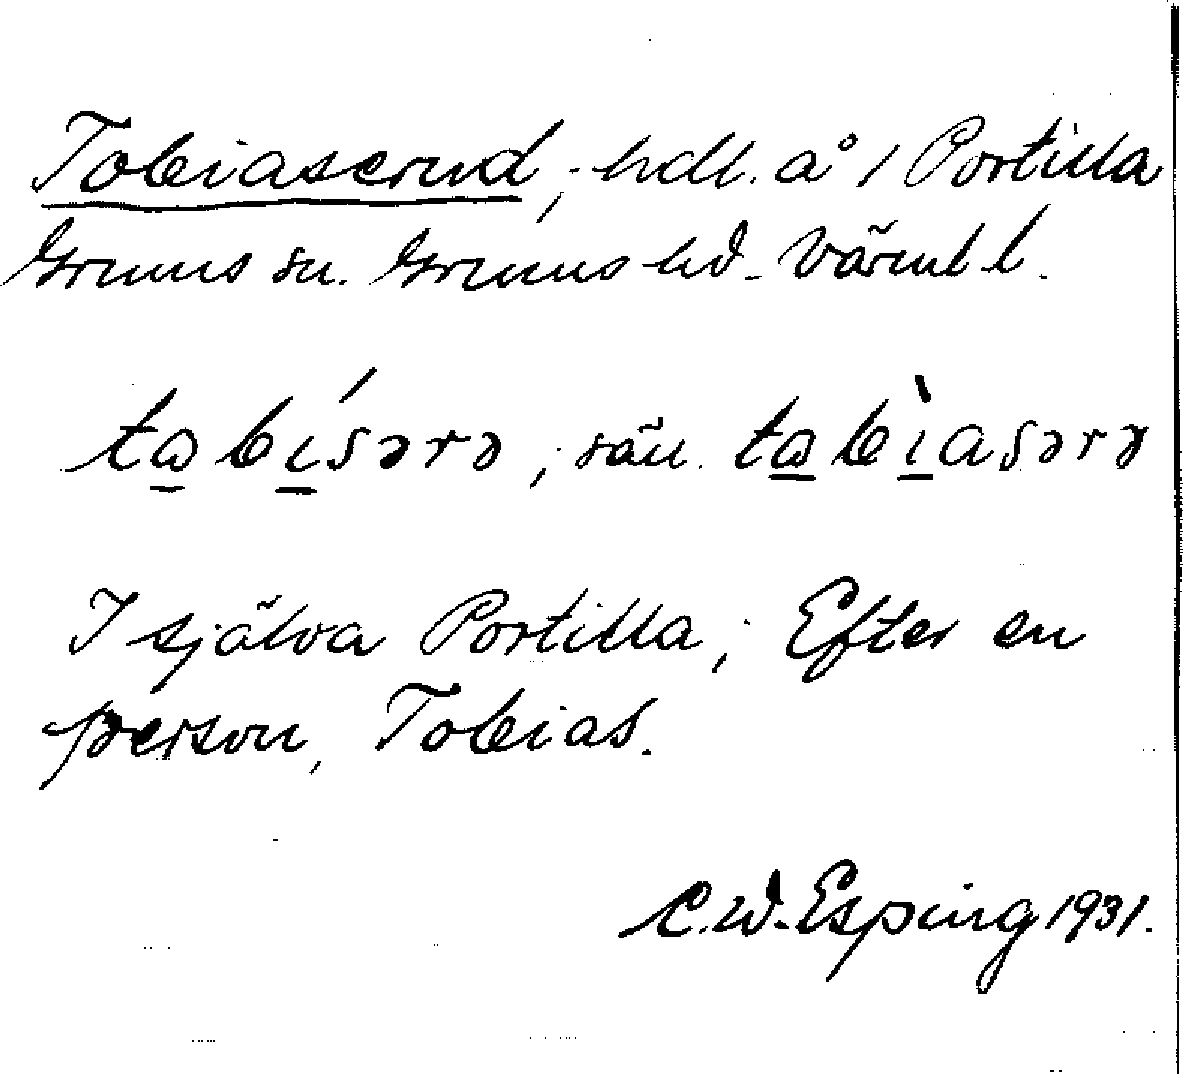 Tobiaserud; hdl. å 1 Portilla
Grums sn. Grums hd. Värml l.
tɷbísərə, sän. tɷbìasərə
I själva Portilla; Efter en
person, Tobias.
C.W. Esping 1931.